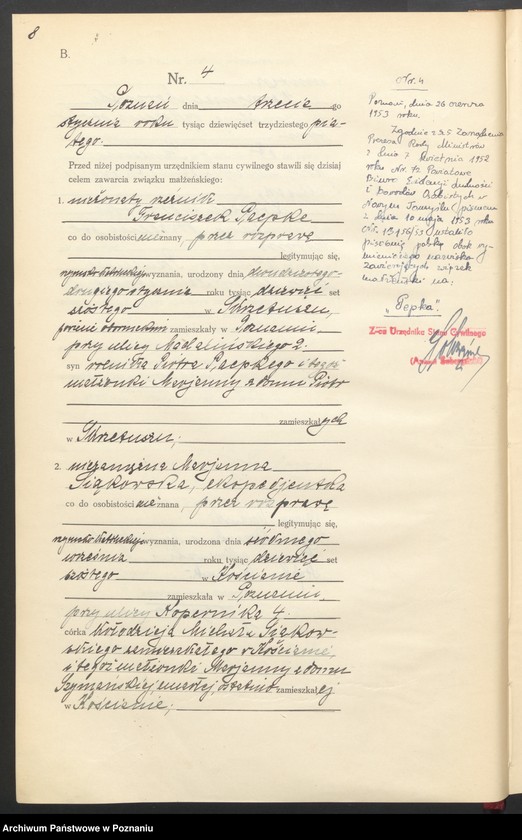 8
B.
Nr. 4
Poznań dnia trzecie -go
stycznia roku tysiąc dziewięćset trzydziestego pią-
tego.
Przed niżej podpisanym urzędnikiem stanu cywilnego stawili się dzisiaj
celem zawarcia związku małżeńskiego:
1. nieżonaty
Franciszek Paepke
co do osobistości nieznany, przez rozprawę
legitymując się,
rzymsko-katolickiego wyznania, urodzony dnia dwudziestego-
drugiego stycznia roku tysiąc dziewięć set
szóstego w Skrzetuszu,
powiecie obornickim zamieszkały w Poznaniu
przy ulicy Madalińskiego 2.
syn rolnika Piotra Paepkego i tegoż
małżonki Marjanny z domu Piotr
zamieszkałych
w Skrzetuszu,
2. niezamężna Marjanna
Siąkowska, ekspedjentka
co do osobistości nieznana, przez rozprawę
legitymując się,
rzymsko-katolickiego wyznania, urodzona dnia siódmego
września roku tysiąc dziewięć set
szóstego w Kościanie
zamieszkała w Poznaniu,
przy ulicy Kopernika 4.
córka kołodzieja Michała Siąkow-
skiego zamieszkałego w Kościanie
i tegoż małżonki Marjanny z domu
Szymańskiej, zmarłej, ostatnio zamieszkałej
w Kościanie,
Nr. 4
Poznań, dnia 26 czerwca
1953 roku.
Zgodnie z § 5 Zarządzenia
Prezesa Rady Ministrów
z dnia 7 kwietnia 1952
roku Nr. 72 Powiatowe
Biuro Ewidencji Ludności
i Dowodów Osobistych w
Nowym Tomyślu pismem
z dnia 10 maja 1953 roku
ustaliło
pisownię polską obok wy-
mienionego nazwiska
zawierających związek
małżeński na:
"Pepka".
Z-ca Urzędnika Stanu Cywilnego
Archiwum Państwowe w Poznaniu